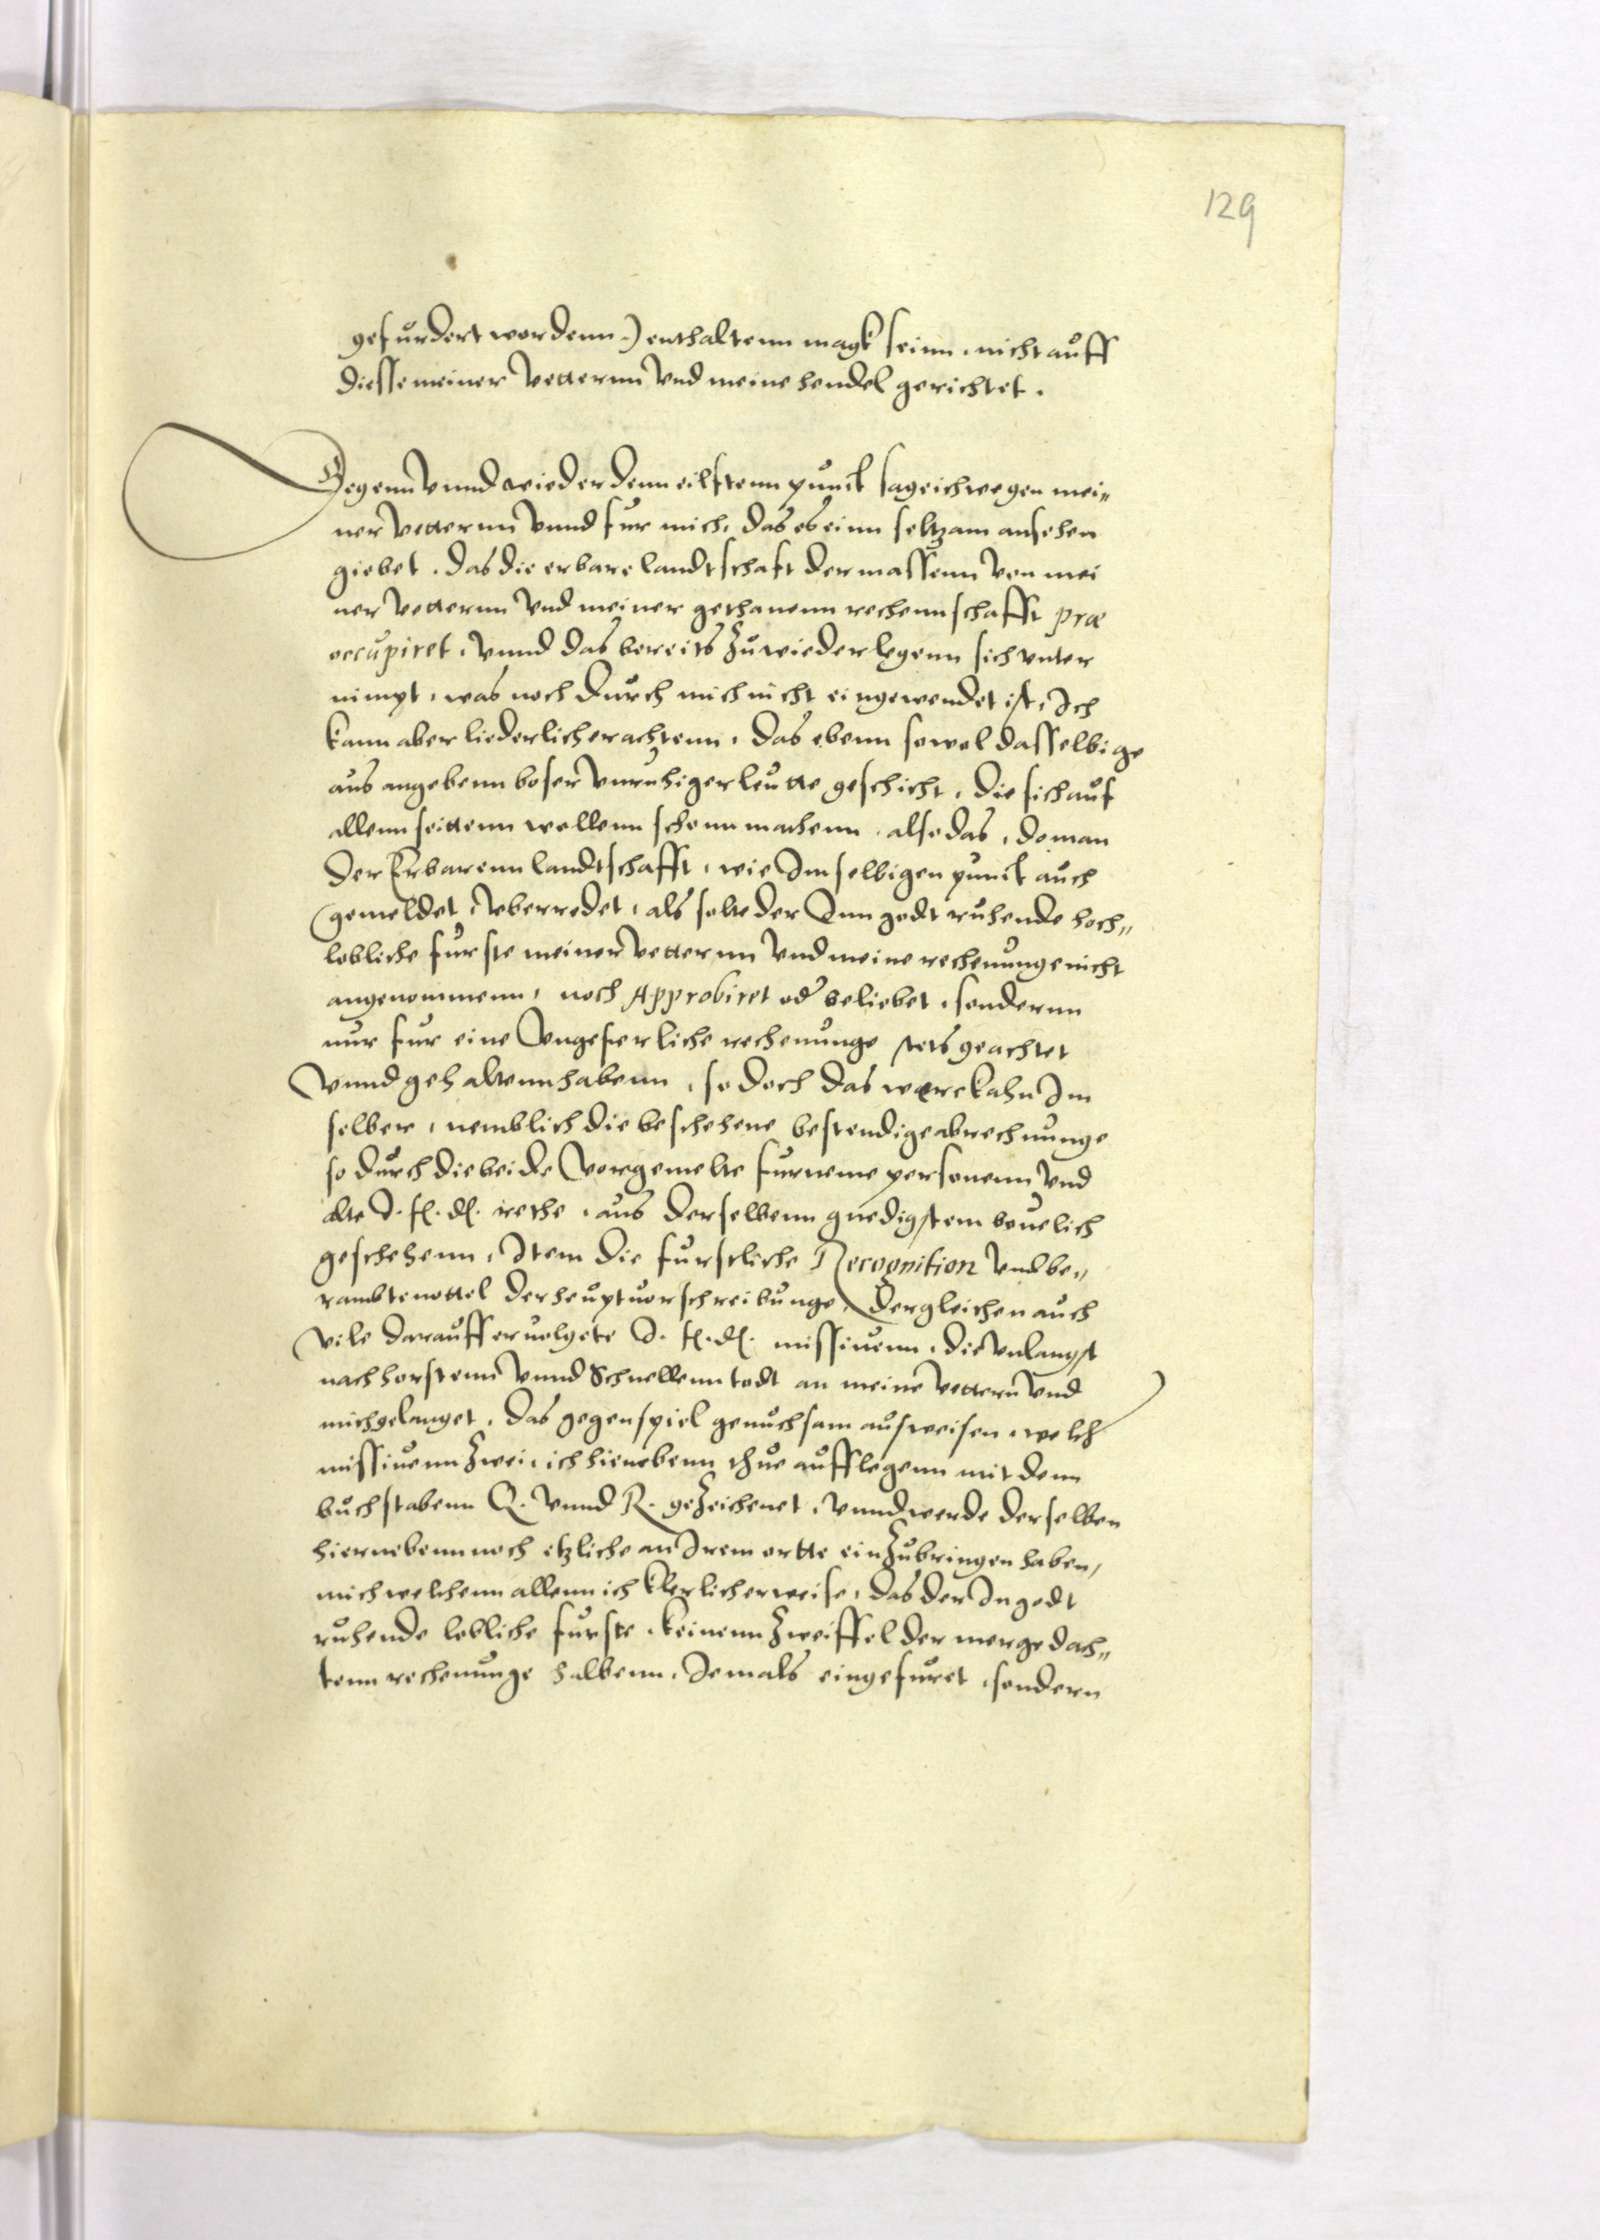 129
gefurdert wordenn) enthaltenn magk seinn, nicht auff
diesse meiner vetternn vnd meine hendel gerichtet.
Gegenn vnnd wieder denn eilftenn punct sage ich wegen mei„
ner vetternn vnnd fur mich, das es einn seltzam ansehen
giebet, das die erbare landtschaft dermassenn von mei
ner vetternn vnd meiner gethanenn rechennschafft præ
occupiret, vnnd das bereits zuwiederlegenn sich vnter
nimpt, was noch durch mich nicht eingewendet ist, Ich
kann aber liederlich erachtenn, das ebenn sowol dasselbige
aus angebenn boser vnruhiger leutte geschicht, die sich auf
allenn seittenn wollenn schonn machenn, also das, do man
der Erbarenn landtschafft, wie Im selbigen punct auch
gemeldet, vberredet, als solte der Inn godt ruhende hoch„
lobliche furste meiner vetternn vnd meine rechenunge nicht
angenommenn, noch Approbiret oder beliebet, sondernn
nur fur eine vngeferliche rechenunge stets geachtet
vnnd gehaltenn habenn, so doch das werck ahn Im
selber, nemblich die beschehene bestendige abrechnunge
so durch die beide vorgemelte furneme personenn vnd
alte I. f. d. rethe, aus derselbenn gnedigstem beuelich
geschehenn, Item die furstliche Recognition vnd be„
rambte nottel der heuptuorschreibunge, dergleichen auch
viele darauff eruolgete I. f. d. missiuenn, die vnlangst
nach horstenn vnnd Schnellenn todt an meine vettern vnd
mich gelanget, das gegenspiel genuchsam ausweisen, welch
missiuenn zwei, ich hienebenn thue aufflegenn mit denn
buchstabenn Q. vnnd R. gezeichenet, vnnd werde derselben
hiernebenn noch etzliche an Irem ortte einzubringen haben,
mich welchenn allenn ich klerlich erweise, das der In godt
ruhende lobliche furste, keinenn zweiffel der mergedach„
tenn rechenunge halbenn, Iemals eingefuret, sondern